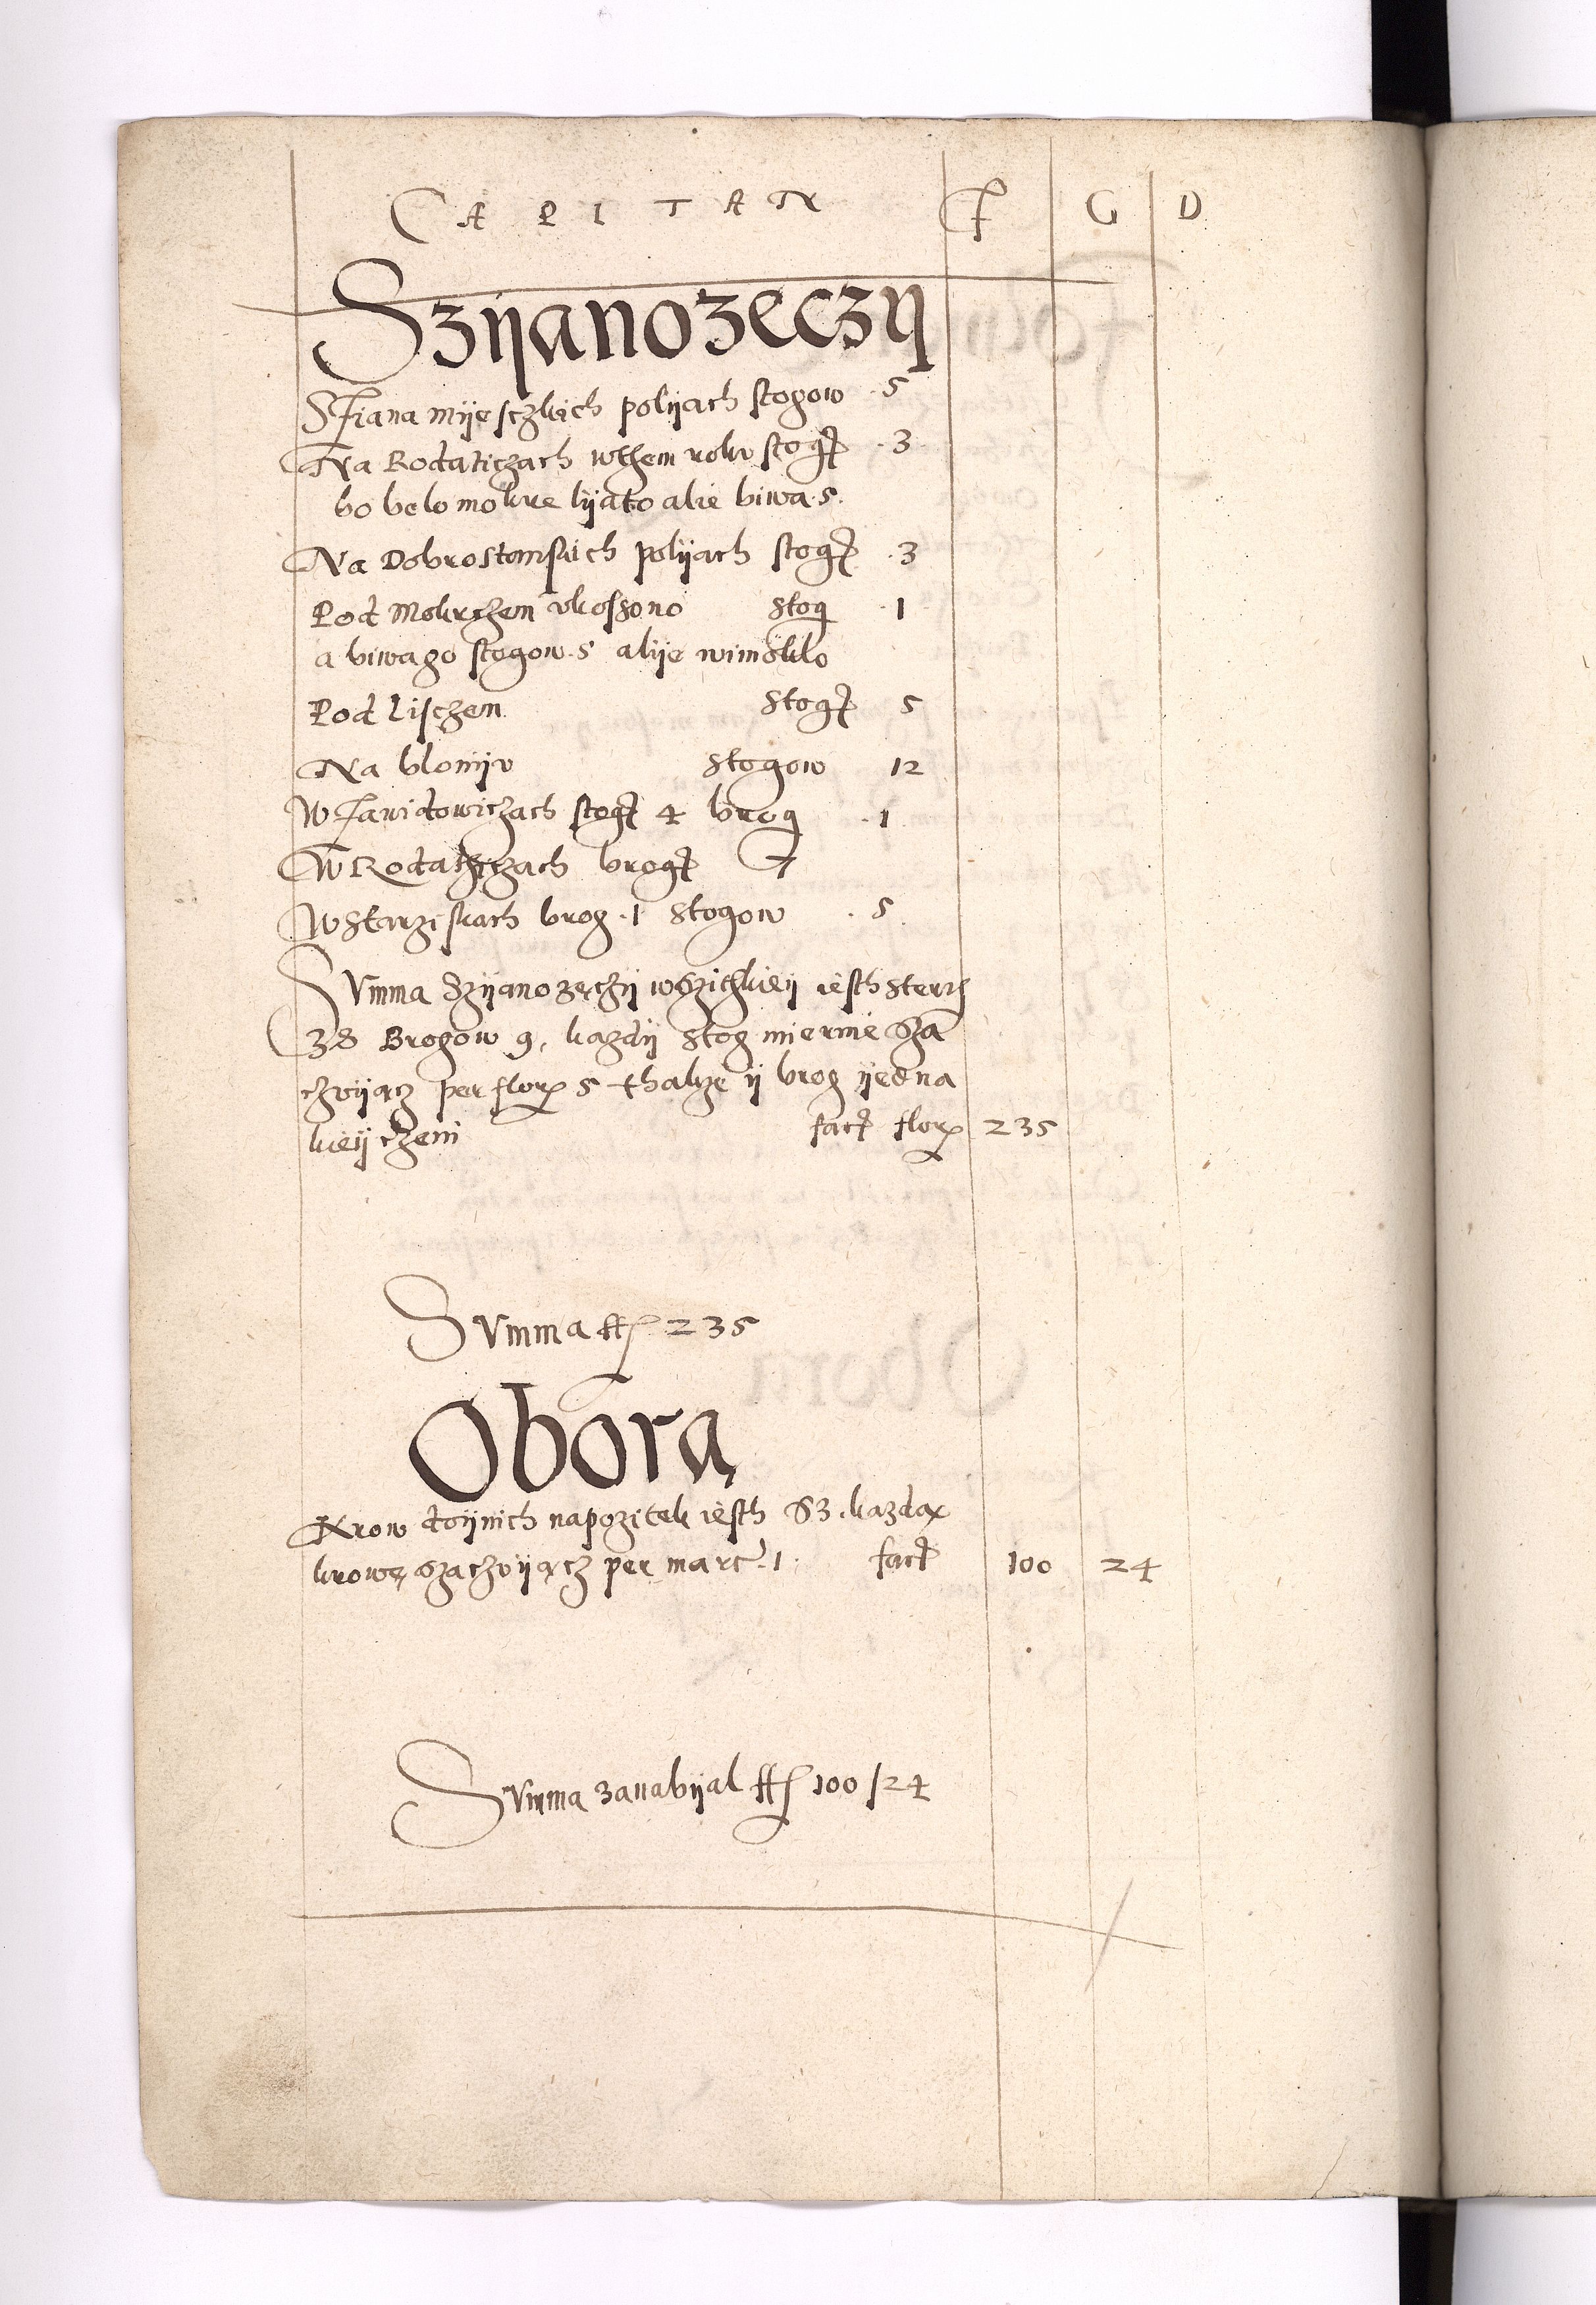 CAPITAN F G D
Szÿanozeczÿ
Siana mÿesczkich polÿach stogow 5
Na Rodaticzach wthem roku stogi 3
bo belo mokre lÿato alie biwa 5.
Na Dobrostanskich polÿach stogi 3
Pod Mokrzem vkossono stog 1
a biwago stogow 5 alÿe wimokło
Pod Lisczem stogi 5
Na blonÿv stogow 12
W Jawidowiczach stogi 4 brog 1
W Rodaticzach brogi 7
W Starziskach brog 1 stogow 5
Summa Szÿanozęczÿ wszitzkieÿ iesth sterth
38 Brogow 9, kazdÿ stog miernie sza
czvÿącz per flor 5 thakze ÿ brog ÿedna
kieÿ czeni fact flor 235
Summa ff 235
Obora
Krow doÿnich napozitek iesth 63 kazdą
krowę szaczvÿącz per marc 1 fact 100 24
Summa zanabÿal ff 100 / 24